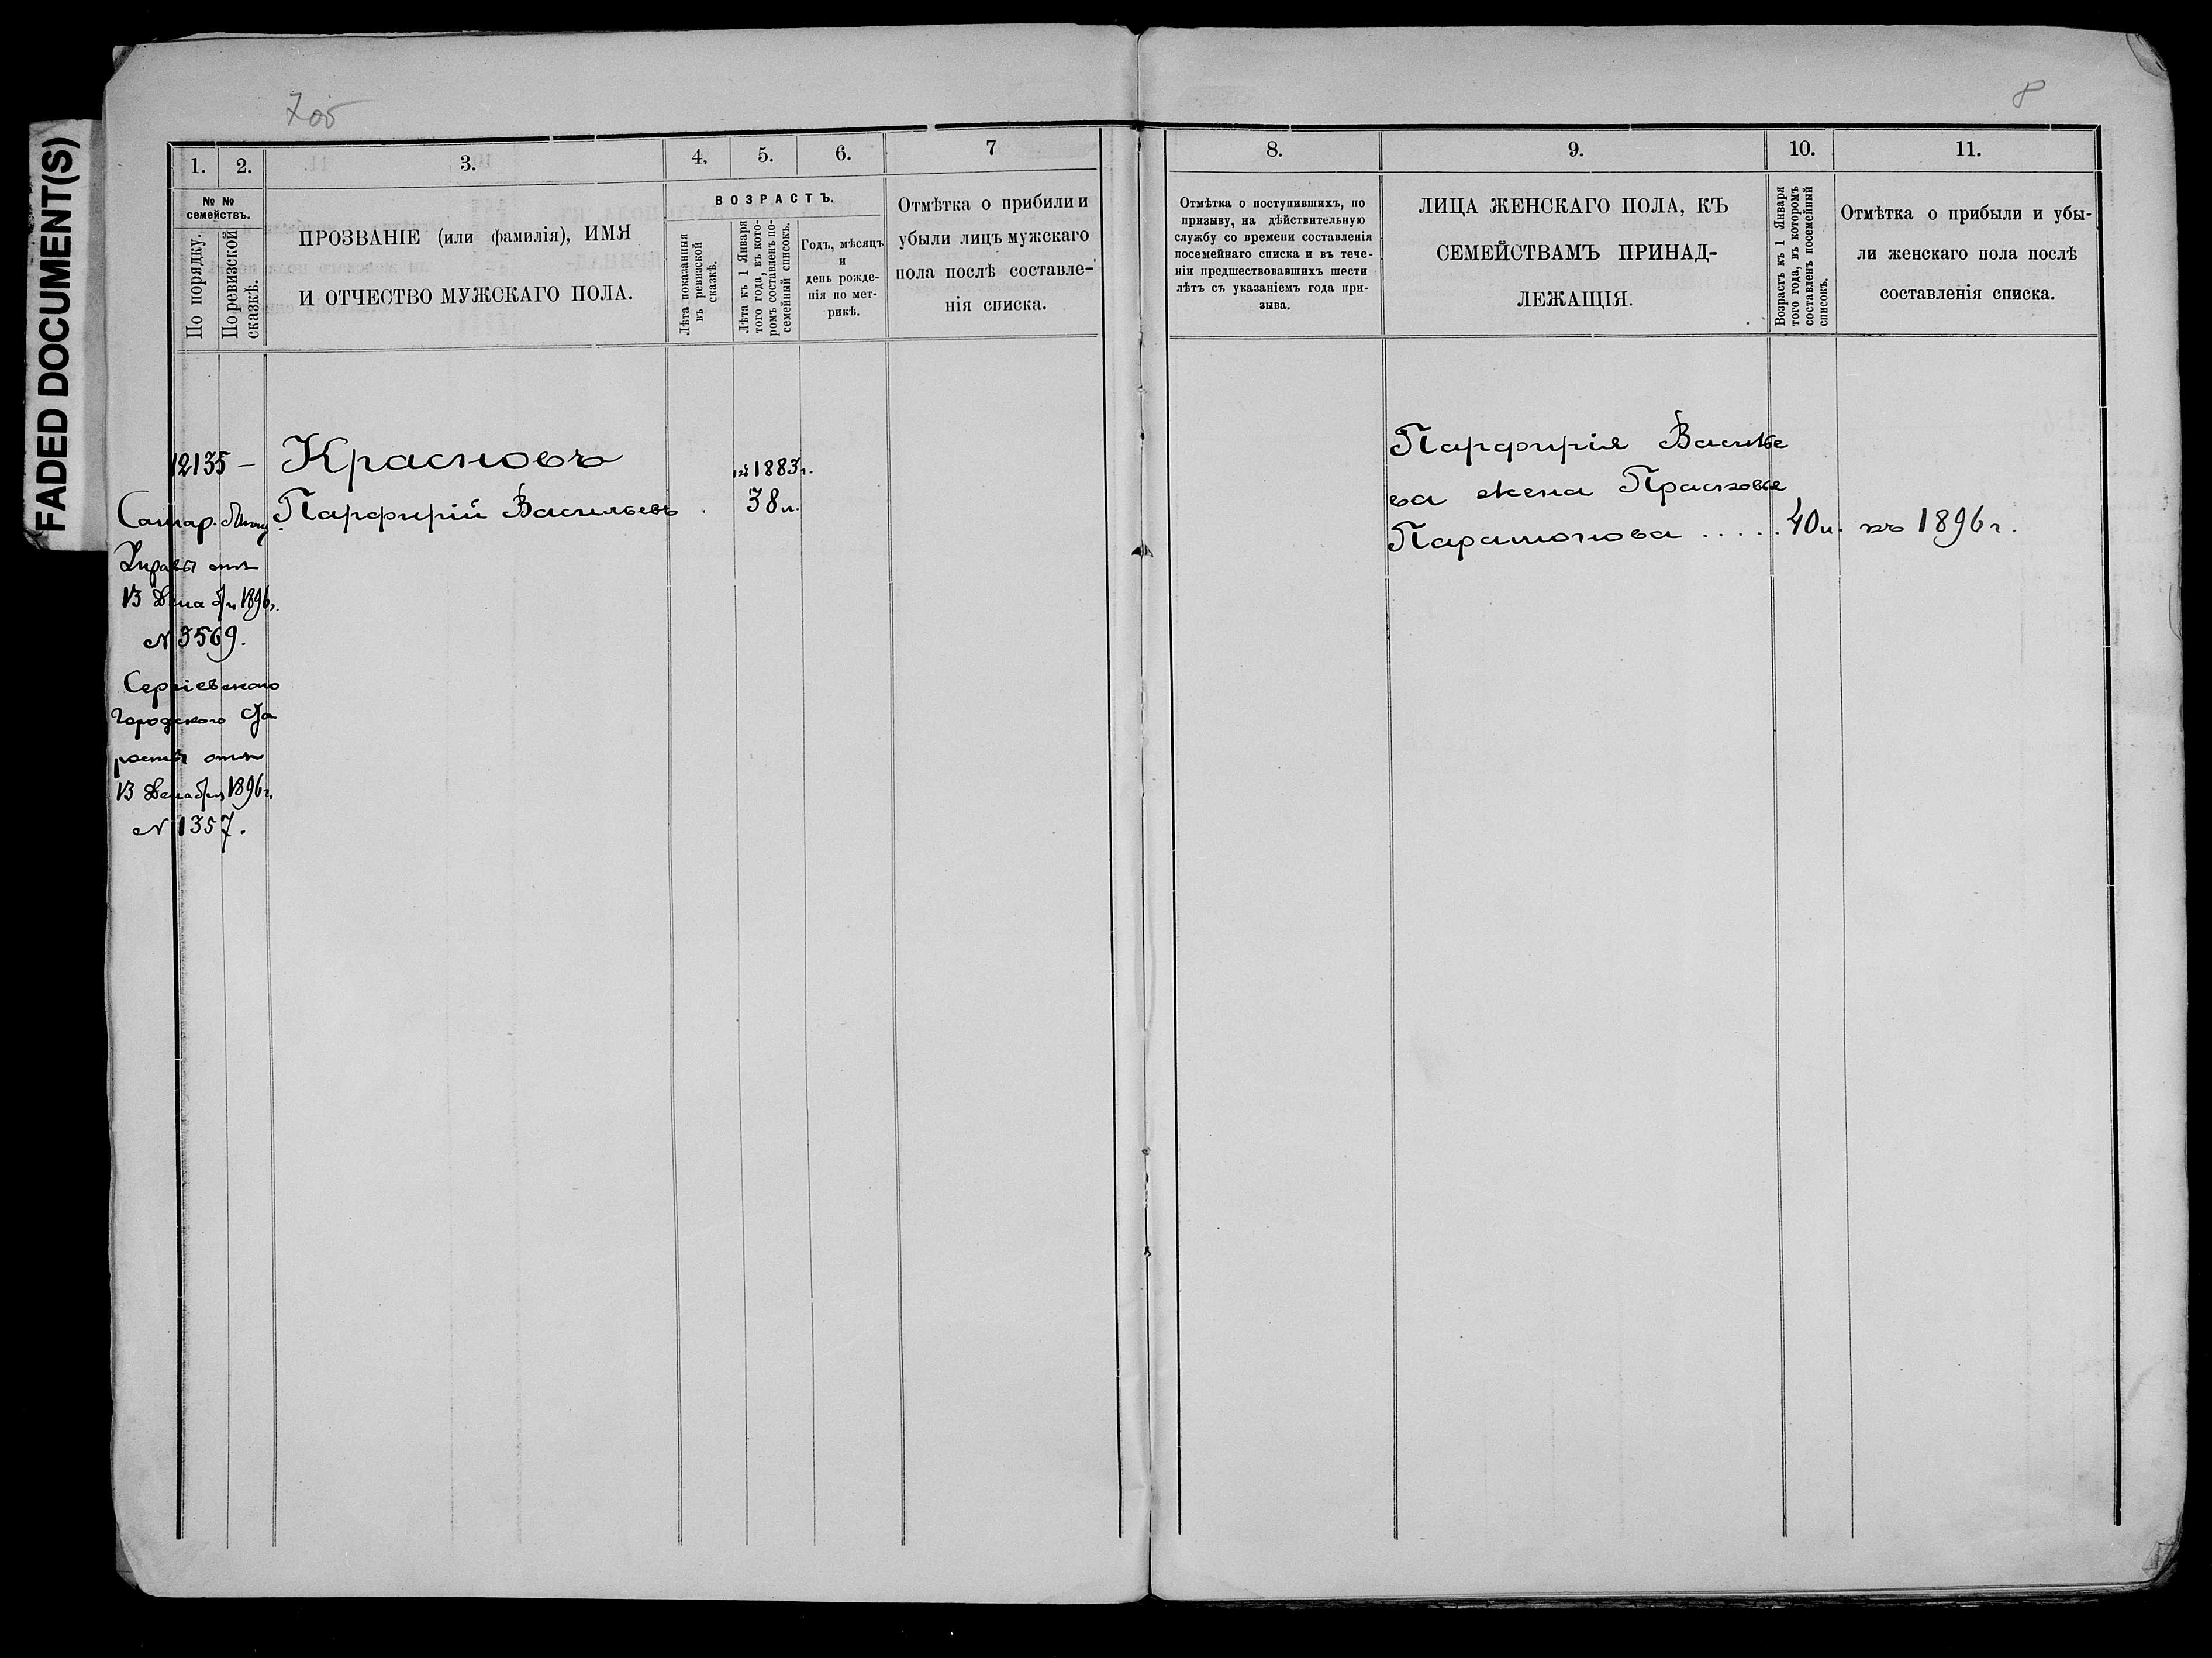 FADED DOCUMENT(S)
7об
8
1.
2.
3.
4.
5.
6.
7
№ №
семействъ.
По порядку.
По ревизской
сказкѣ.
ПРОЗВАНІЕ (или фамилія), ИМЯ
И ОТЧЕСТВО МУЖСКАГО ПОЛА.
ВОЗРАСТЪ.
Лѣта показанныя
въ ревизской
сказкѣ.
Лѣта къ 1 Января
того года, въ кото-
ромъ составленъ по-
семейный списокъ.
Годъ, мѣсяцъ
и
день рожде-
нія по мет-
рикѣ.
Отмѣтка о прибыли и
убыли лицъ мужскаго
пола послѣ составле-
нія списка.
8.
9.
10.
11.
Отмѣтка о поступившихъ, по
призыву, на дѣйствительную
службу со времени составленія
посемейнаго списка и въ тече-
ніи предшествовавшихъ шести
лѣтъ съ указаніемъ года при-
зыва.
ЛИЦА ЖЕНСКАГО ПОЛА, КЪ
СЕМЕЙСТВАМЪ ПРИНАД-
ЛЕЖАЩІЯ.
Возрастъ къ 1 Января
того года, въ которомъ
составленъ посемейный
списокъ.
Отмѣтка о прибыли и убы-
ли женскаго пола послѣ
составленія списка.
12135 — Красновъ 1883г.
Парфирій Васильевъ 38 л.
Самар.
Управы отъ
13 Декабря 1896г.
№ 3569.
Сергіевскаго
Городского Ста
росты отъ
13 Декабря 1896г.
№ 1357.
Парфирія Василье
ва жена Прасковье
Парамонова ..... 40 л. къ 1896 г.